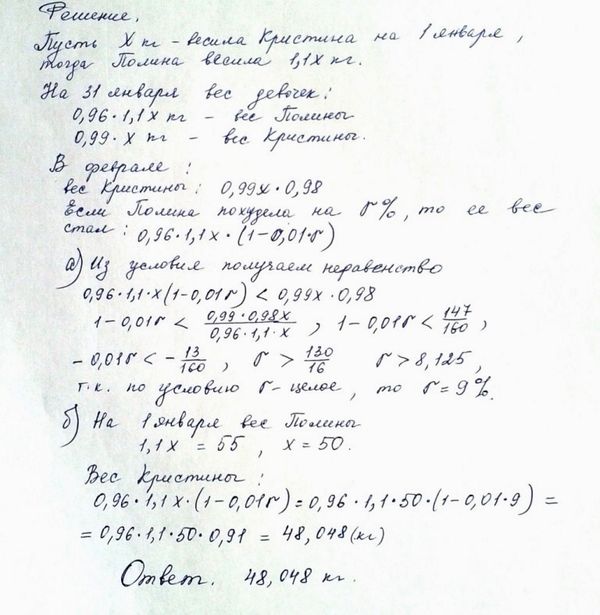 Решение.
Пусть х кг - весила Кристина на 1 января,
тогда Полина весила 1,1х кг.
На 31 января вес девочек:
0,96·1,1х кг - вес Полины
0,99·х кг - вес Кристины.
В феврале:
вес Кристины: 0,99х·0,98
Если Полина похудела на r%, то ее вес
стал: 0,96·1,1х·(1-0,01·r)
а) Из условия получаем неравенство
0,96·1,1·х(1-0,01r) < 0,99х·0,98
1-0,01r < (0,99·0,98х)/(0,96·1,1·х), 1-0,01r < 147/160,
-0,01r < -13/160, r > 130/16 r > 8,125,
т.к. по условию r-целое, то r=9%.
б) На 1 января вес Полины
1,1х = 55, х = 50.
Вес Кристины:
0,96·1,1х·(1-0,01r) = 0,96·1,1·50·(1-0,01·9) =
= 0,96·1,1·50·0,91 = 48,048 (кг)
Ответ. 48,048 кг.